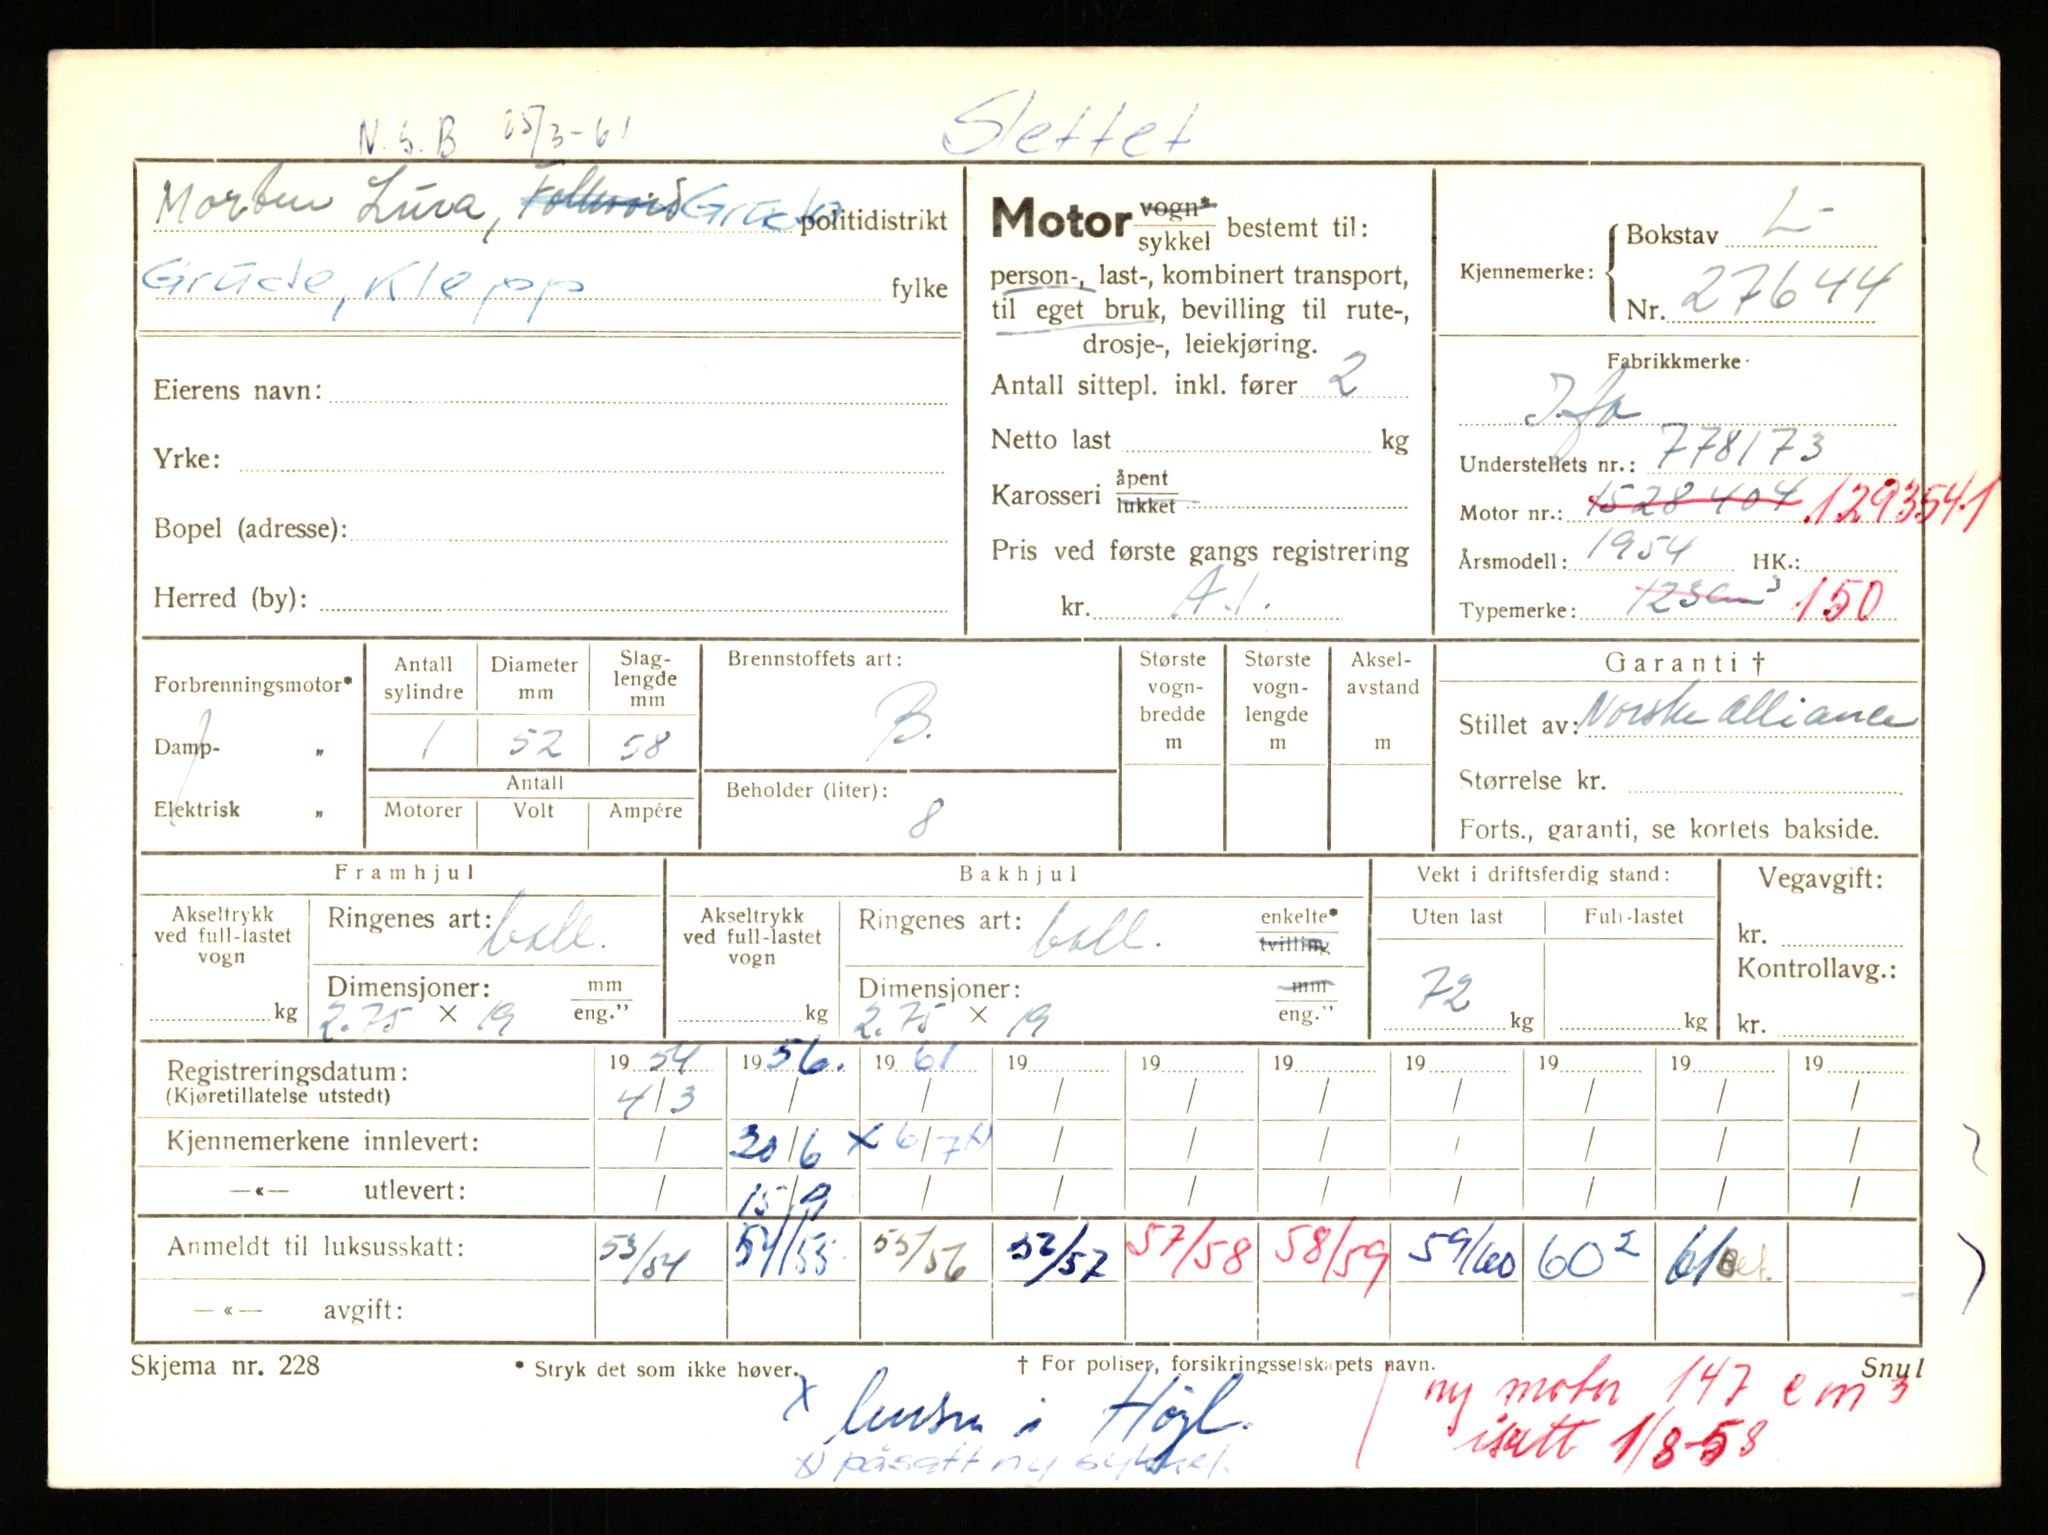 N.S.B 25/3-61
Slettet
Morten Lura, Folkvord Grude politidistrikt
Grude, Klepp fylke
Eierens navn:
Yrke:
Bopel (adresse):
Herred (by):
Motor vogn* sykkel bestemt til:
person-, last-, kombinert transport,
til eget bruk, bevilling til rute-,
drosje-, leiekjøring.
Antall sittepl. inkl. fører 2
Netto last kg
Karosseri åpent lukket
Pris ved første gangs registrering
kr. A.1.
Kjennemerke: Bokstav L-
Nr. 27644
Fabrikkmerke
Ifa
Understellets nr.: 778173
Motor nr.: 1528404 1293541
Årsmodell: 1954 HK.:
Typemerke: 123cm3 150
Forbrenningsmotor*
Damp- „
Elektrisk „
Antall sylindre Diameter mm Slag-lengde mm
1 52 58
Antall
Motorer Volt Ampére
Brennstoffets art:
B.
Beholder (liter):
8
Største vogn-bredde m
Største vogn-lengde m
Aksel-avstand m
Garanti †
Stillet av: Norske Alliance
Størrelse kr.
Forts., garanti, se kortets bakside.
Framhjul
Akseltrykk ved full-lastet vogn
kg
Ringenes art: ball.
Dimensjoner: mm eng."
2.75 × 19
Bakhjul
Akseltrykk ved full-lastet vogn
kg
Ringenes art: ball. enkelte* tvilling
Dimensjoner: mm eng."
2.75 × 19
Vekt i driftsferdig stand:
Uten last Full-lastet
72 kg kg
Vegavgift:
kr.
Kontrollavg.:
kr.
Registreringsdatum: 1954 1956. 1961 19 19 19 19 19 19 19
(Kjøretillatelse utstedt) 4/3 / / / / / / / / /
Kjennemerkene innlevert: / 30/6 x 6/7 x) / / / / / / /
—«— utlevert: / 15/9 / / / / / / / /
Anmeldt til luksusskatt: 53/54 54/55 55/56 52/57 57/58 58/59 59/60 60² 61
—«— avgift:
Skjema nr. 228 * Stryk det som ikke høver. † For poliser, forsikringsselskapets navn. Snu!
x i Høgl.
x) påsatt ny sykkel.
ny motor 147 cm3
isatt 1/8-58